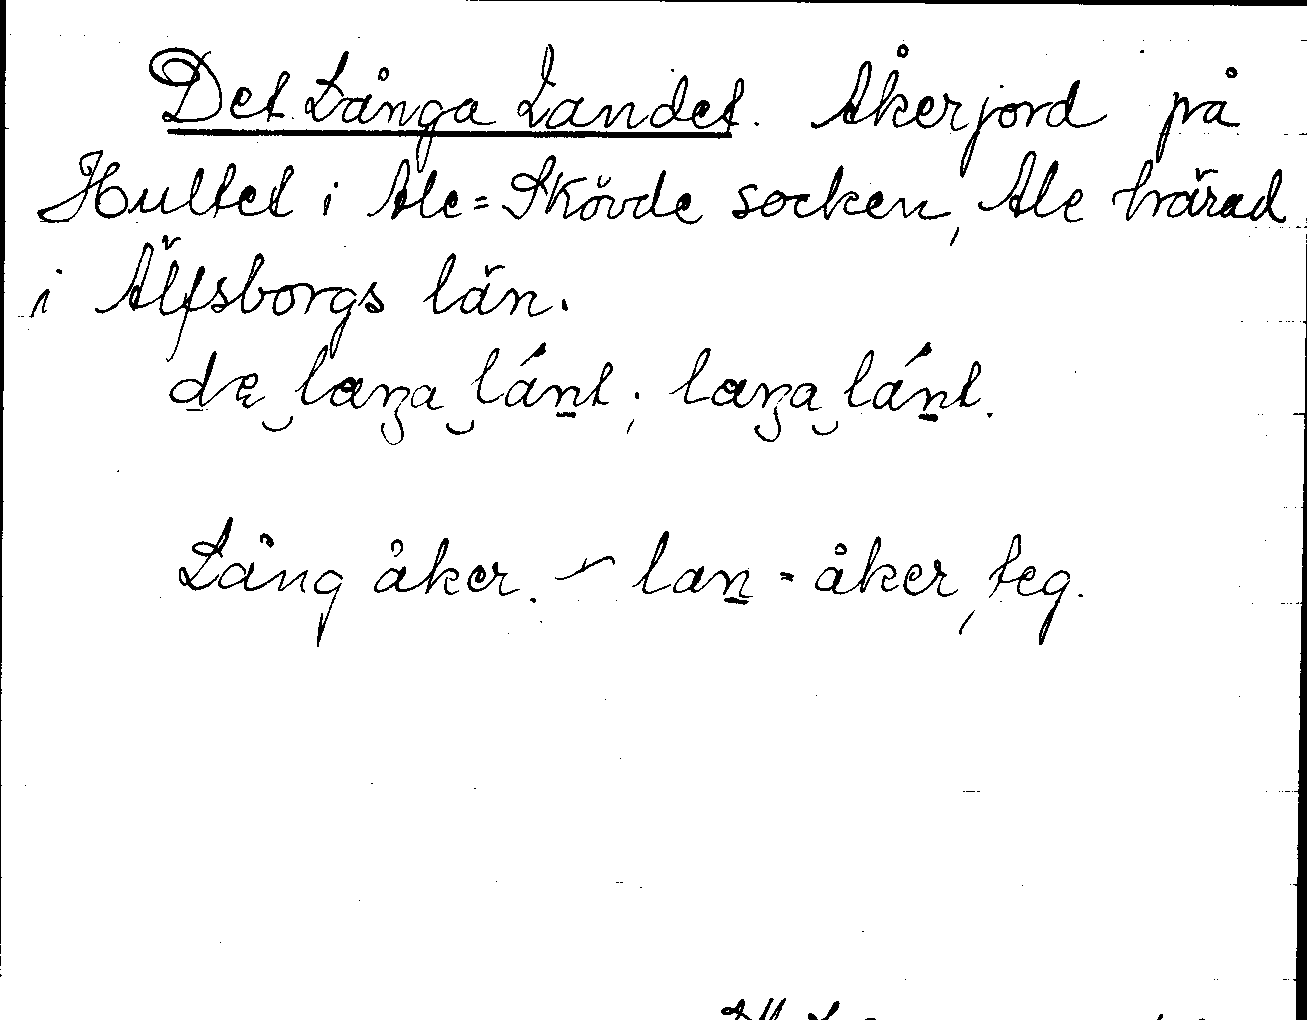 Det Långa Landet. Åkerjord på
Hultet i Ale=Skövde socken, Ale härad
i Älfsborgs län.
dę laŋa lánt; laŋa lánt.
Lång åker. – lan = åker, teg.